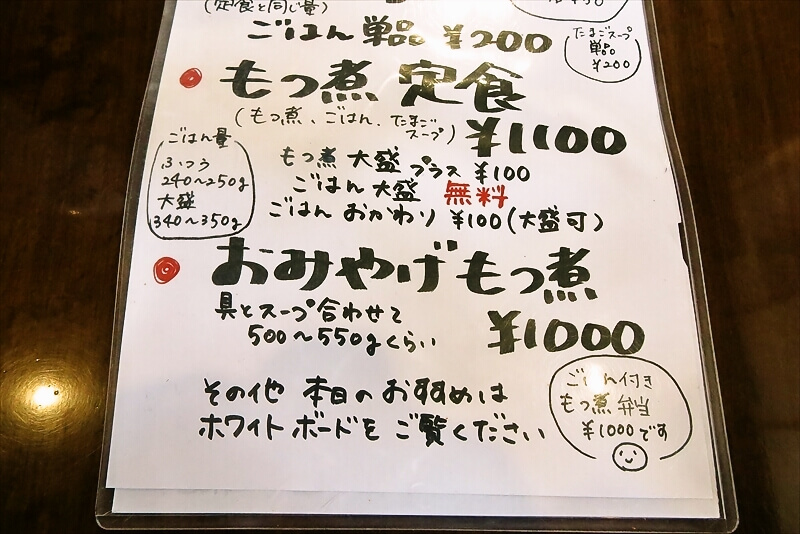 (定食と同じ量)
ごはん 単品 ¥200
たまごスープ
単品
¥200
もつ煮 定食
(もつ煮、ごはん、たまご
スープ)
¥1100
ごはん量
ふつう
240〜250g
大盛
340〜350g
もつ煮 大盛 プラス ¥100
ごはん 大盛 無料
ごはん おかわり ¥100(大盛可)
おみやげもつ煮
具とスープ合わせて
500〜550gくらい
¥1000
その他 本日のお薦めは
ホワイトボードをご覧ください
ごはん付き
もつ煮弁当
¥1000です